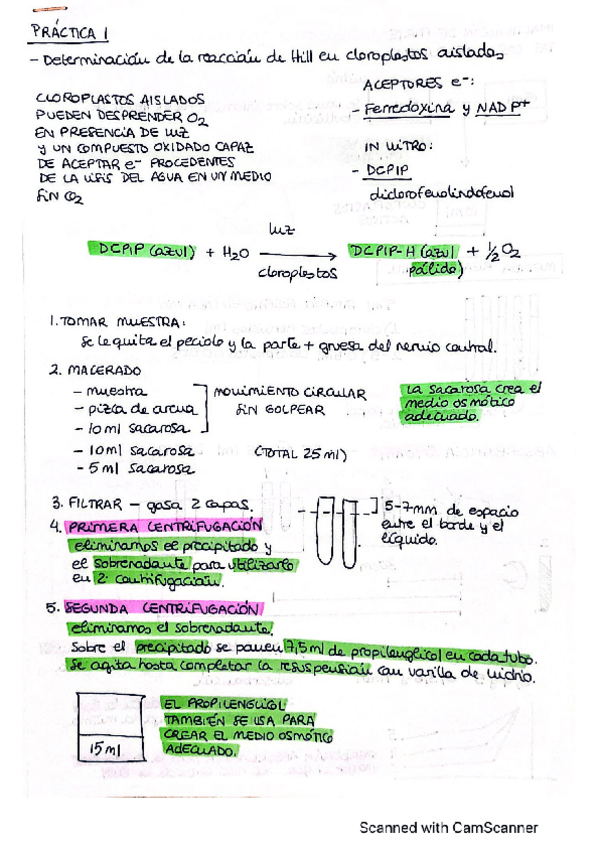 PRÁCTICA 1
- Determinación de la reacción de Hill en cloroplastos aislados
CLOROPLASTOS AISLADOS
PUEDEN DESPRENDER O2
EN PRESENCIA DE LUZ
Y UN COMPUESTO OXIDADO CAPAZ
DE ACEPTAR e- PROCEDENTES
DE LA LISIS DEL AGUA EN UN MEDIO
SIN CO2
ACEPTORES e-:
- Ferredoxina y NADP+
IN VITRO:
- DCPIP
diclorofenolindofenol
luz
DCPIP (azul) + H2O → DCPIP-H (azul pálido) + 1/2 O2
cloroplastos
1. TOMAR MUESTRA:
Se le quita el peciolo y la parte + gruesa del nervio central.
2. MACERADO
- muestra
- pizca de arena
- 10 ml sacarosa
MOVIMIENTO CIRCULAR
SIN GOLPEAR
La sacarosa crea el
medio osmótico
adecuado.
- 10 ml sacarosa (TOTAL 25 ml)
- 5 ml sacarosa
3. FILTRAR - gasa 2 capas.
5-7 mm de espacio
entre el borde y el
líquido.
4. PRIMERA CENTRIFUGACIÓN
eliminamos el precipitado y
el sobrenadante para utilizarlo
en 2ª centrifugación.
5. SEGUNDA CENTRIFUGACIÓN
eliminamos el sobrenadante.
Sobre el precipitado se ponen 7,5 ml de propilenglicol en cada tubo.
Se agita hasta completar la resuspensión con varilla de vidrio.
15 ml
EL PROPILENGLICOL
TAMBIÉN SE USA PARA
CREAR EL MEDIO OSMÓTICO
ADECUADO.
Scanned with CamScanner